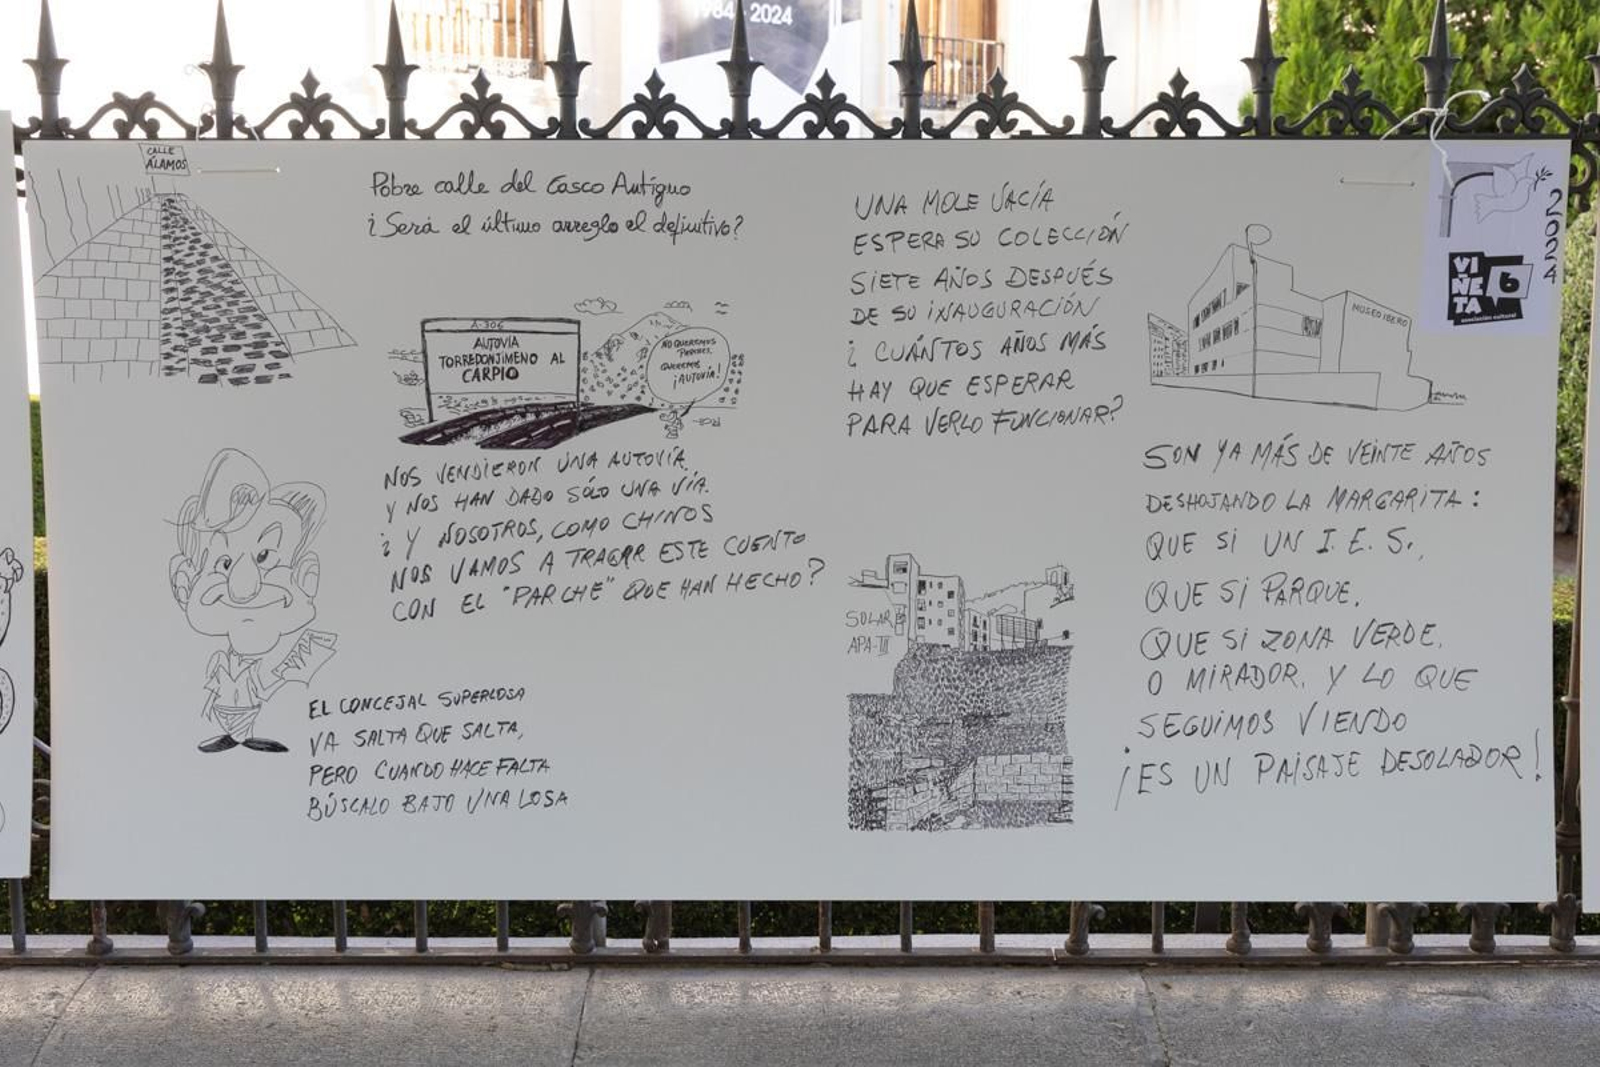 1984-2024
CALLE
ÁLAMOS
Pobre calle del Casco Antiguo
¿Será el último arreglo el definitivo?
A-306
AUTOVÍA
TORREDONJIMENO AL
CARPIO
NO QUEREMOS
PARCHES,
QUEREMOS
¡AUTOVÍA!
NOS VENDIERON UNA AUTOVÍA
Y NOS HAN DADO SÓLO UNA VÍA.
¿Y NOSOTROS, COMO CHINOS
NOS VAMOS A TRAGAR ESTE CUENTO
CON EL "PARCHE" QUE HAN HECHO?
EL CONCEJAL SUPERLOSA
VA SALTA QUE SALTA,
PERO CUANDO HACE FALTA
BÚSCALO BAJO UNA LOSA
UNA MOLE VACÍA
ESPERA SU COLECCIÓN
SIETE AÑOS DESPUÉS
DE SU INAUGURACIÓN
¿CUÁNTOS AÑOS MÁS
HAY QUE ESPERAR
PARA VERLO FUNCIONAR?
MUSEO IBERO
SOLAR
APA-III
SON YA MÁS DE VEINTE AÑOS
DESHOJANDO LA MARGARITA:
QUE SI UN I.E.S.,
QUE SI PARQUE,
QUE SI ZONA VERDE,
O MIRADOR. Y LO QUE
SEGUIMOS VIENDO
¡ES UN PAISAJE DESOLADOR!
2024
VIÑETA 6
asociación cultural